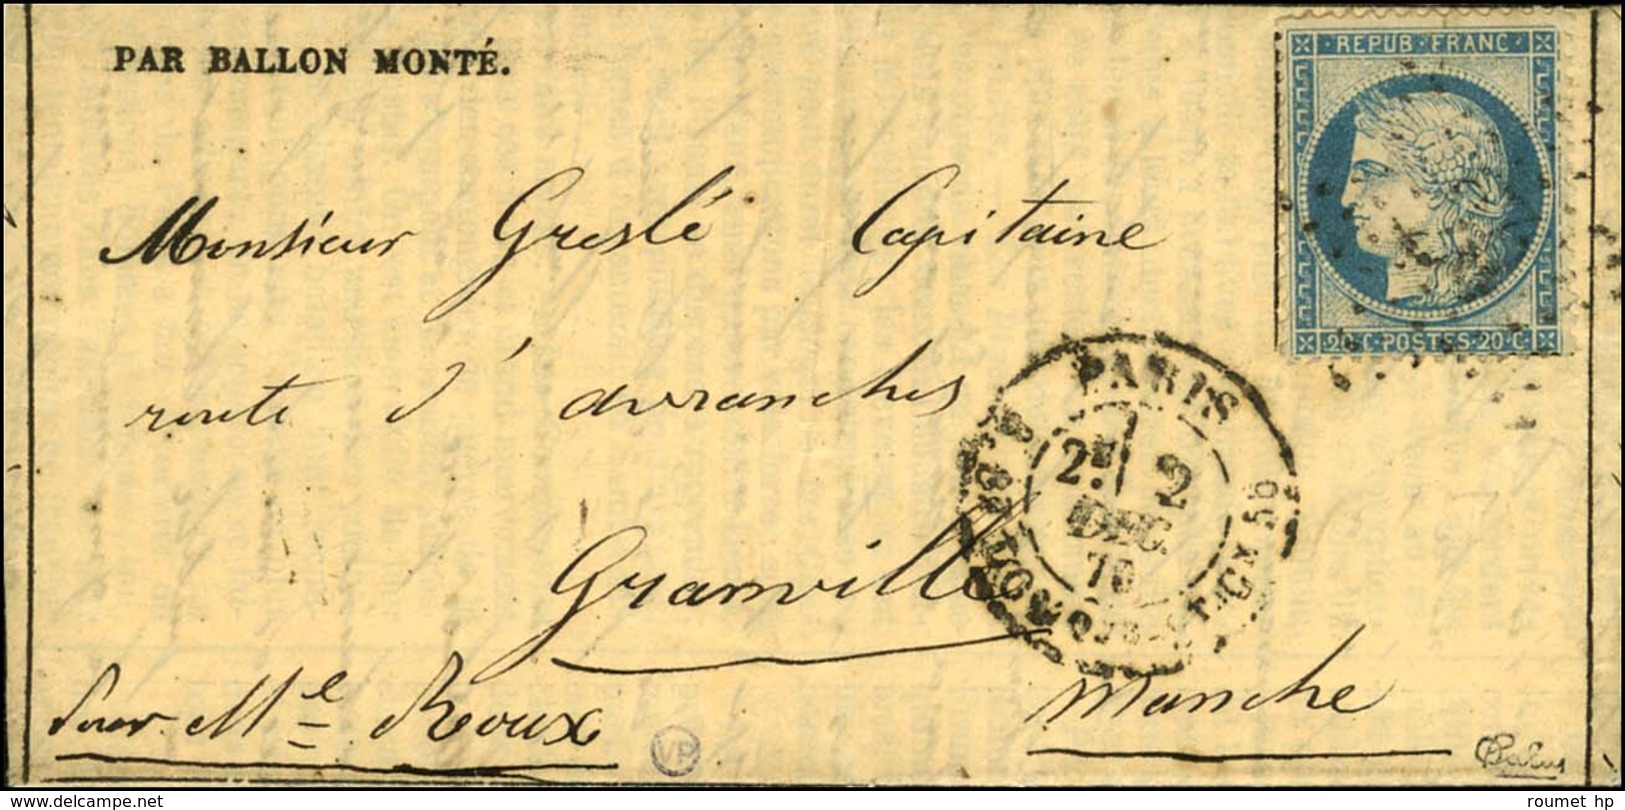 PAR BALLON MONTÉ.
REPUB. FRANC
20 C POSTES 20 C
Monsieur Greslé Capitaine
route d'avranches
Granville
Manche
pour Mle Roux
PARIS
2E 2
DEC.
70
56
VP
roumet hp